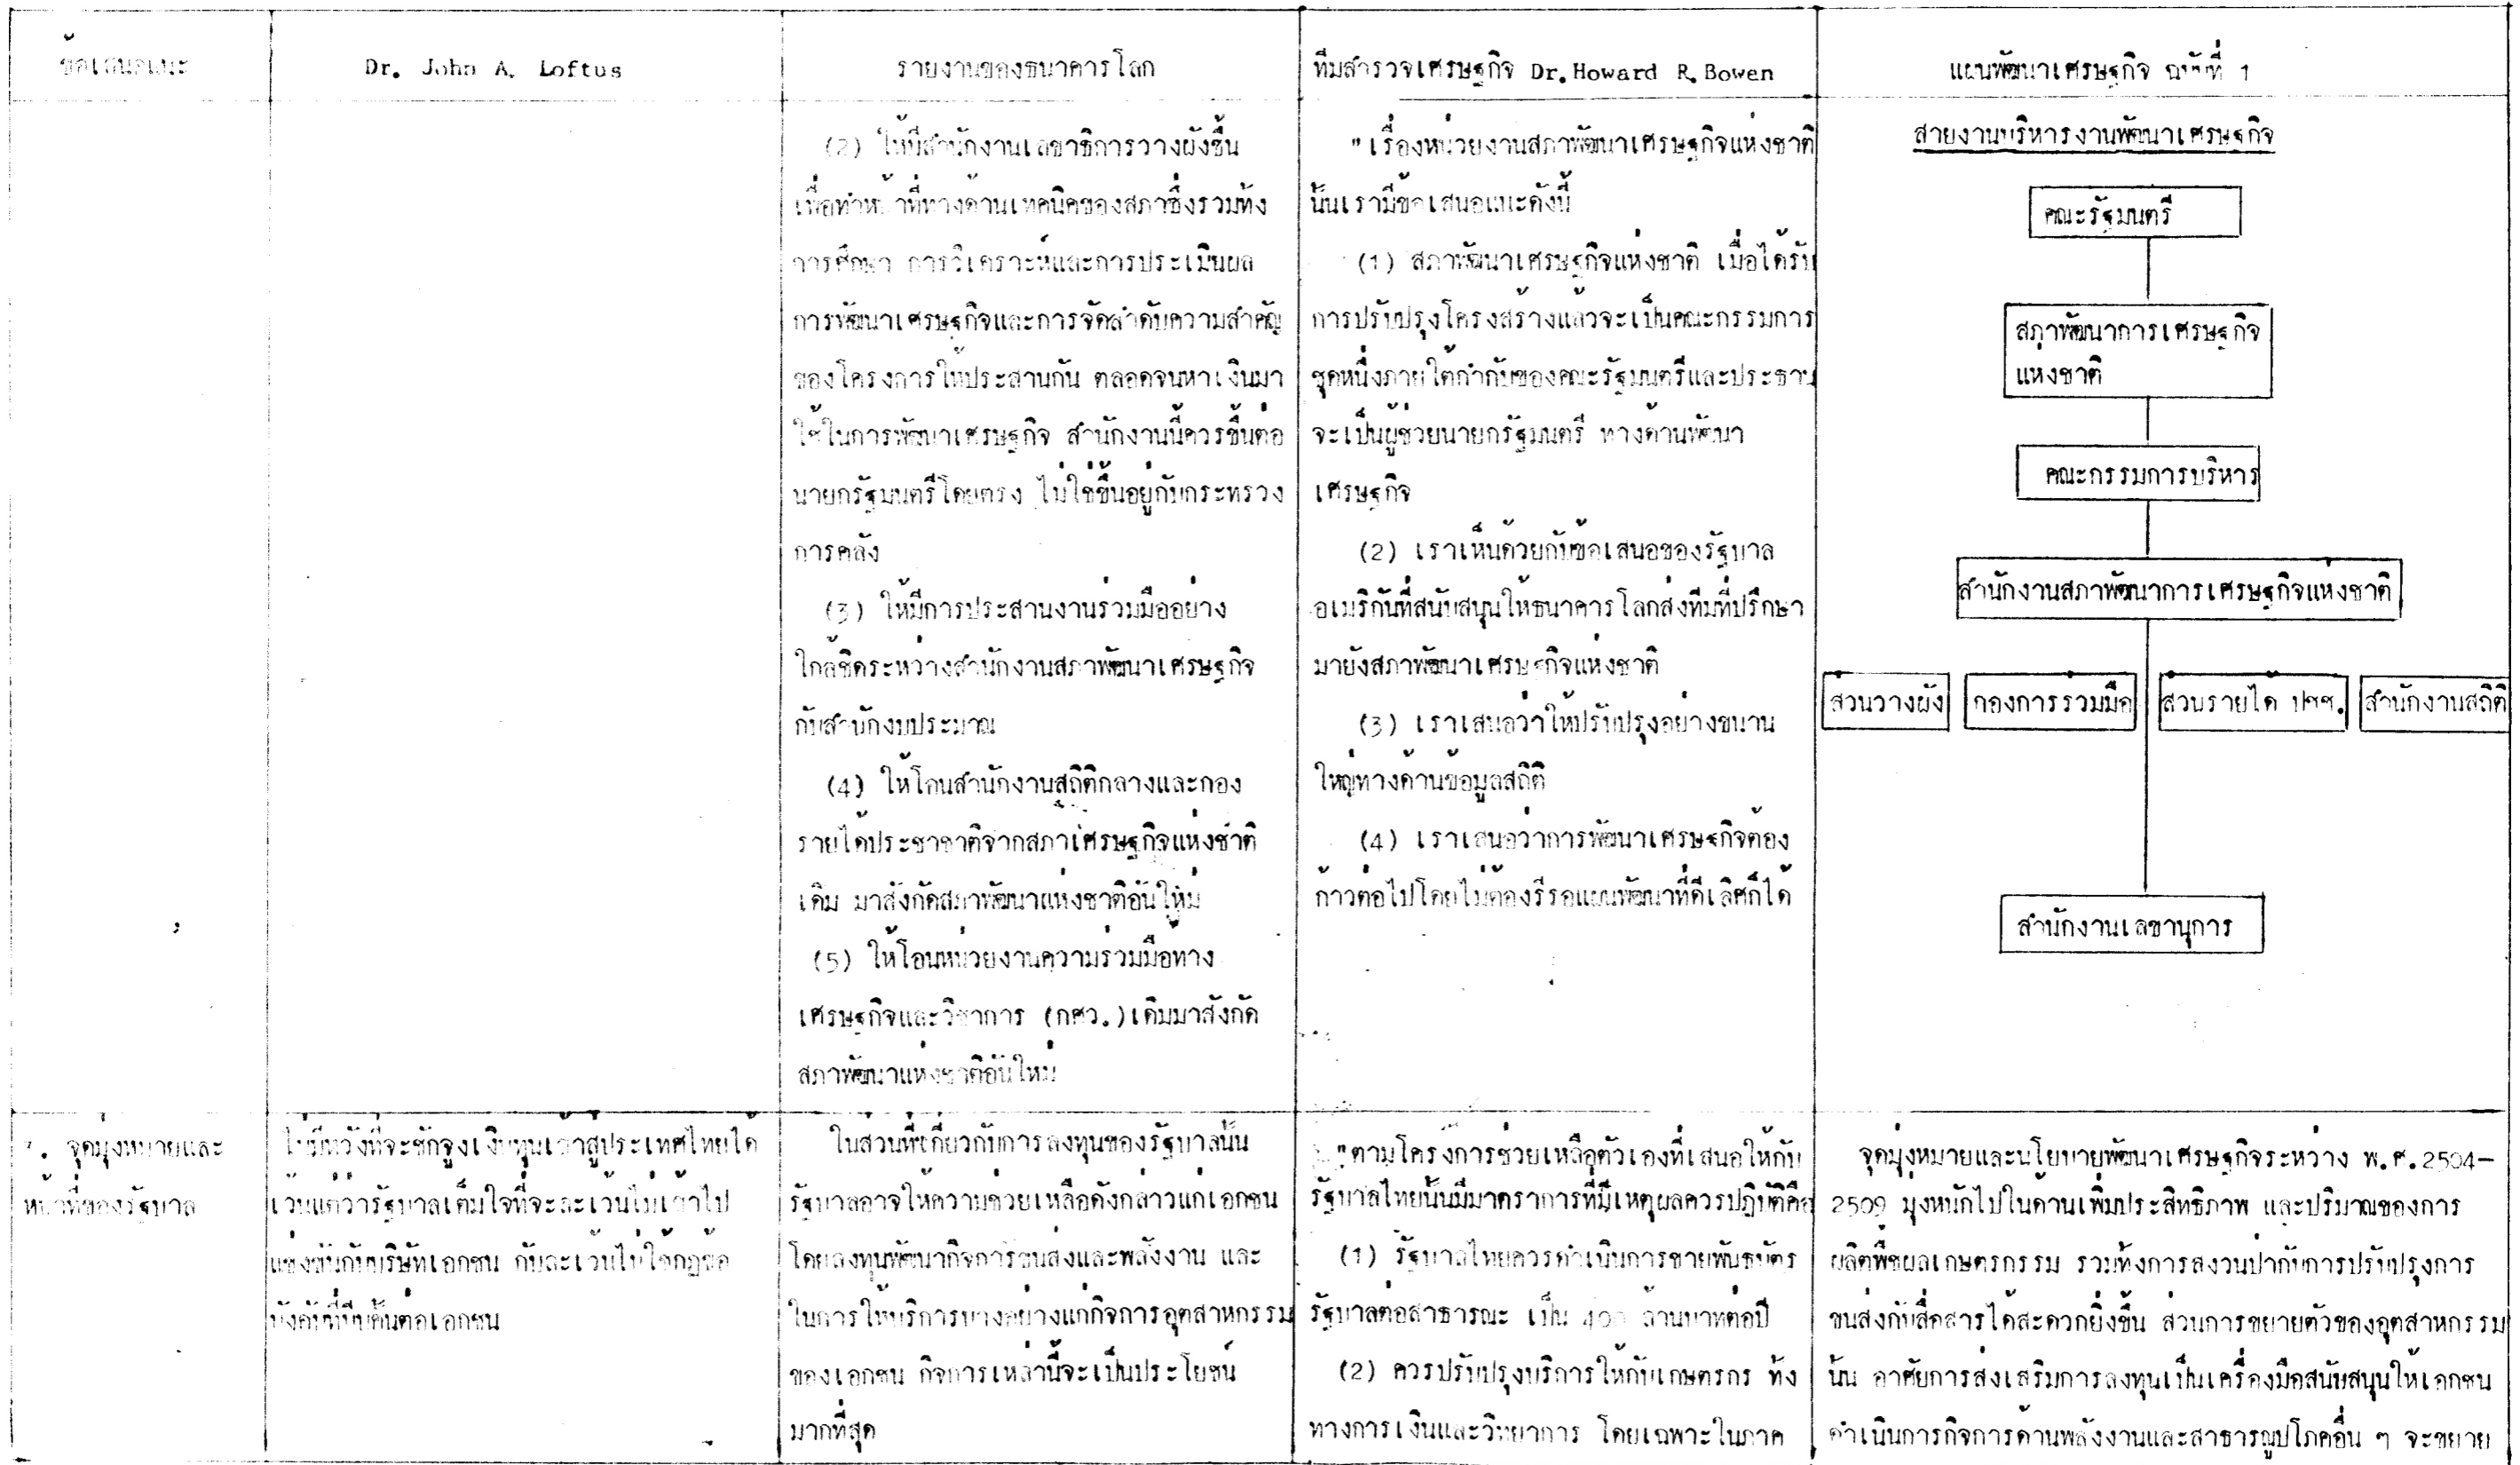 ข้อเสนอแนะ
Dr. John A. Loftus
รายงานของธนาคารโลก
ทีมสำรวจเศรษฐกิจ Dr.Howard R.Bowen
แผนพัฒนาเศรษฐกิจ ฉบับที่ 1
(2) ให้มีสำนักงานเลขาธิการวางผังขึ้น
เพื่อทำหน้าที่ทางด้านเทคนิคของสภาซึ่งรวมทั้ง
การศึกษา การวิเคราะห์และการประเมินผล
การพัฒนาเศรษฐกิจและการจัดลำดับความสำคัญ
ของโครงการให้ประสานกัน ตลอดจนหาเงินมา
ใช้ในการพัฒนาเศรษฐกิจ สำนักงานนี้ควรขึ้นต่อ
นายกรัฐมนตรีโดยตรง ไม่ใช่ขึ้นอยู่กับกระทรวง
การคลัง
(3) ให้มีการประสานงานร่วมมืออย่าง
ใกล้ชิดระหว่างสำนักงานสภาพัฒนาเศรษฐกิจ
กับสำนักงบประมาณ
(4) ให้โอนสำนักงานสถิติกลางและกอง
รายได้ประชาชาติจากสภาเศรษฐกิจแห่งชาติ
เดิม มาสังกัดสภาพัฒนาแห่งชาติอันใหม่
(5) ให้โอนหน่วยงานความร่วมมือทาง
เศรษฐกิจและวิชาการ (กศว.)เดิมมาสังกัด
สภาพัฒนาแห่งชาติอันใหม่
"เรื่องหน่วยงานสภาพัฒนาเศรษฐกิจแห่งชาติ
นั้นเรามีข้อเสนอแนะดังนี้
(1) สภาพัฒนาเศรษฐกิจแห่งชาติ เมื่อได้รับ
การปรับปรุงโครงสร้างแล้วจะเป็นคณะกรรมการ
ชุดหนึ่งภายใต้กำกับของคณะรัฐมนตรีและประธาน
จะเป็นผู้ช่วยนายกรัฐมนตรี ทางด้านพัฒนา
เศรษฐกิจ
(2) เราเห็นด้วยกับข้อเสนอของรัฐบาล
อเมริกันที่สนับสนุนให้ธนาคารโลกส่งทีมที่ปรึกษา
มายังสภาพัฒนาเศรษฐกิจแห่งชาติ
(3) เราเสนอว่าให้ปรับปรุงอย่างขนาน
ใหญ่ทางด้านข้อมูลสถิติ
(4) เราเสนอว่าการพัฒนาเศรษฐกิจต้อง
ก้าวต่อไปโดยไม่ต้องรีรอแผนพัฒนาที่ดีเลิศก็ได้
สายงานบริหารงานพัฒนาเศรษฐกิจ
คณะรัฐมนตรี
สภาพัฒนาการเศรษฐกิจ
แห่งชาติ
คณะกรรมการบริหาร
สำนักงานสภาพัฒนาการเศรษฐกิจแห่งชาติ
ส่วนวางผัง กองการร่วมมือ ส่วนรายได้ ปชช. สำนักงานสถิติ
สำนักงานเลขานุการ
จุดมุ่งหมายและ
หน้าที่ของรัฐบาล
ไม่มีหวังที่จะชักจูงเงินทุนเข้าสู่ประเทศไทยได้
เว้นแต่ว่ารัฐบาลเต็มใจที่จะละเว้นไม่เข้าไป
แข่งขันกับบริษัทเอกชน กับละเว้นไม่ใช้กฎข้อ
บังคับที่บีบคั้นต่อเอกชน
ในส่วนที่เกี่ยวกับการลงทุนของรัฐบาลนั้น
รัฐบาลอาจให้ความช่วยเหลือดังกล่าวแก่เอกชน
โดยลงทุนพัฒนากิจการขนส่งและพลังงาน และ
ในการให้บริการบางอย่างแก่กิจการอุตสาหกรรม
ของเอกชน กิจการเหล่านี้จะเป็นประโยชน์
มากที่สุด
"ตามโครงการช่วยเหลือตัวเองที่เสนอให้กับ
รัฐบาลไทยนั้นมีมาตราการที่มีเหตุผลควรปฏิบัติคือ
(1) รัฐบาลไทยควรดำเนินการขายพันธบัตร
รัฐบาลต่อสาธารณะ เป็น 400 ล้านบาทต่อปี
(2) ควรปรับปรุงบริการให้กับเกษตรกร ทั้ง
ทางการเงินและวิทยาการ โดยเฉพาะในภาค
จุดมุ่งหมายและนโยบายพัฒนาเศรษฐกิจระหว่าง พ.ศ.2504-
2509 มุ่งหนักไปในด้านเพิ่มประสิทธิภาพ และปริมาณของการ
ผลิตพืชผลเกษตรกรรม รวมทั้งการสงวนป่ากับการปรับปรุงการ
ขนส่งกับสื่อสารได้สะดวกยิ่งขึ้น ส่วนการขยายตัวของอุตสาหกรรม
นั้น อาศัยการส่งเสริมการลงทุนเป็นเครื่องมือสนับสนุนให้เอกชน
ดำเนินการกิจการด้านพลังงานและสาธารณูปโภคอื่น ๆ จะขยาย